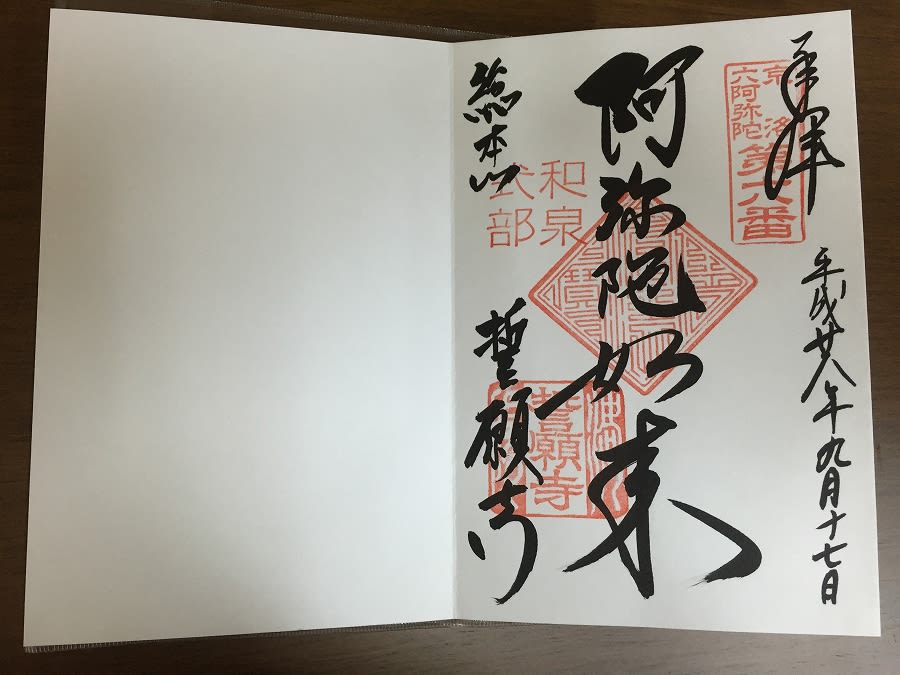 奉拝
平成廿八年九月十七日
京洛
六阿弥陀
第六番
阿弥陀如来
和泉
式部
総本山
誓願寺
誓願寺